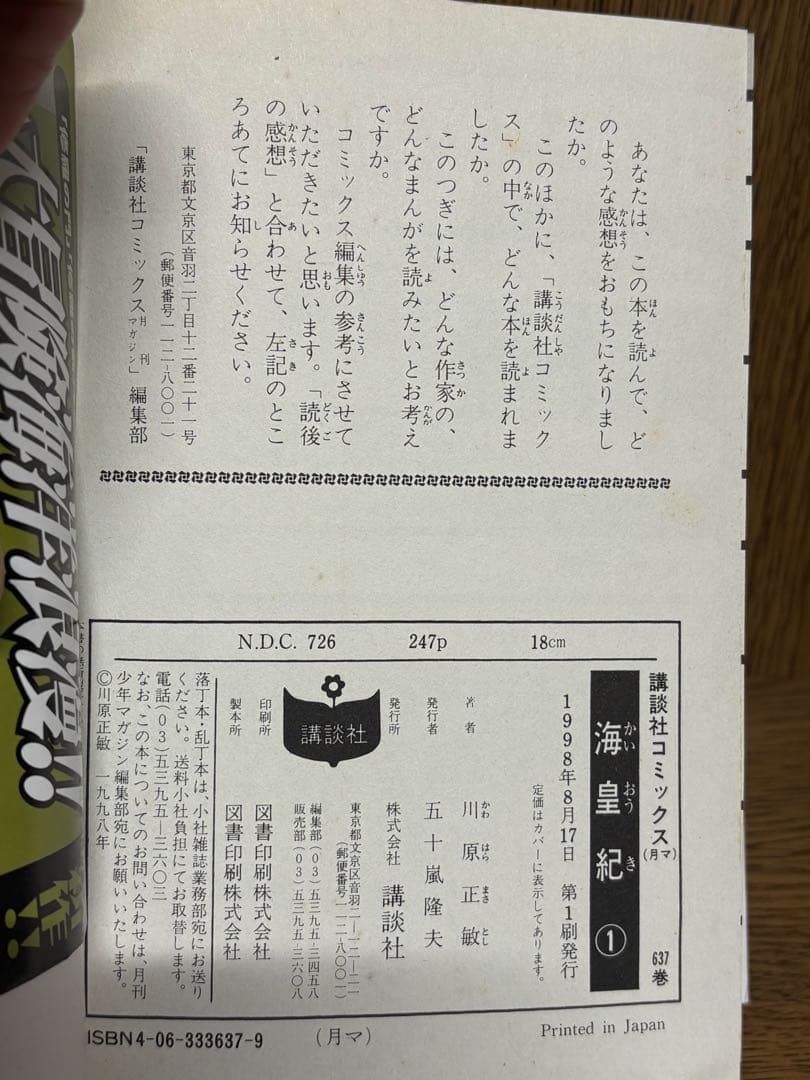 あなたは、この本を読んで、ど
のような感想をおもちになりまし
たか。
このほかに、「講談社コミック
ス」の中で、どんな本を読まれま
したか。
このつぎには、どんな作家の、
どんなまんがを読みたいとお考え
ですか。
コミックス編集の参考にさせて
いただきたいと思います。「読後
の感想」と合わせて、左記のとこ
ろあてにお知らせください。
東京都文京区音羽二丁目十二番二十一号
(郵便番号一一二-八〇〇一)
「講談社コミックス月刊マガジン」編集部
N.D.C. 726 247p 18cm
講談社コミックス(月マ) 637巻
海皇紀 ①
かいおうき
1998年8月17日 第1刷発行
定価はカバーに表示してあります。
著者 川原正敏
かわはらまさとし
発行者 五十嵐隆夫
発行所 株式会社 講談社
東京都文京区音羽二-一二-二一
(郵便番号一一二-八〇〇一)
編集部(〇3)五三九五-三四五八
販売部(〇3)五三九五-三六〇八
講談社
印刷所 図書印刷株式会社
製本所 図書印刷株式会社
落丁本・乱丁本は、小社雑誌業務部宛にお送り
ください。送料小社負担にてお取替します。
電話(〇3)五三九五-三六〇三
なお、この本についてのお問い合わせは、月刊
少年マガジン編集部宛にお願いいたします。
©川原正敏 一九九八年
ISBN4-06-333637-9 (月マ)
Printed in Japan
大冒険海洋浪漫!!